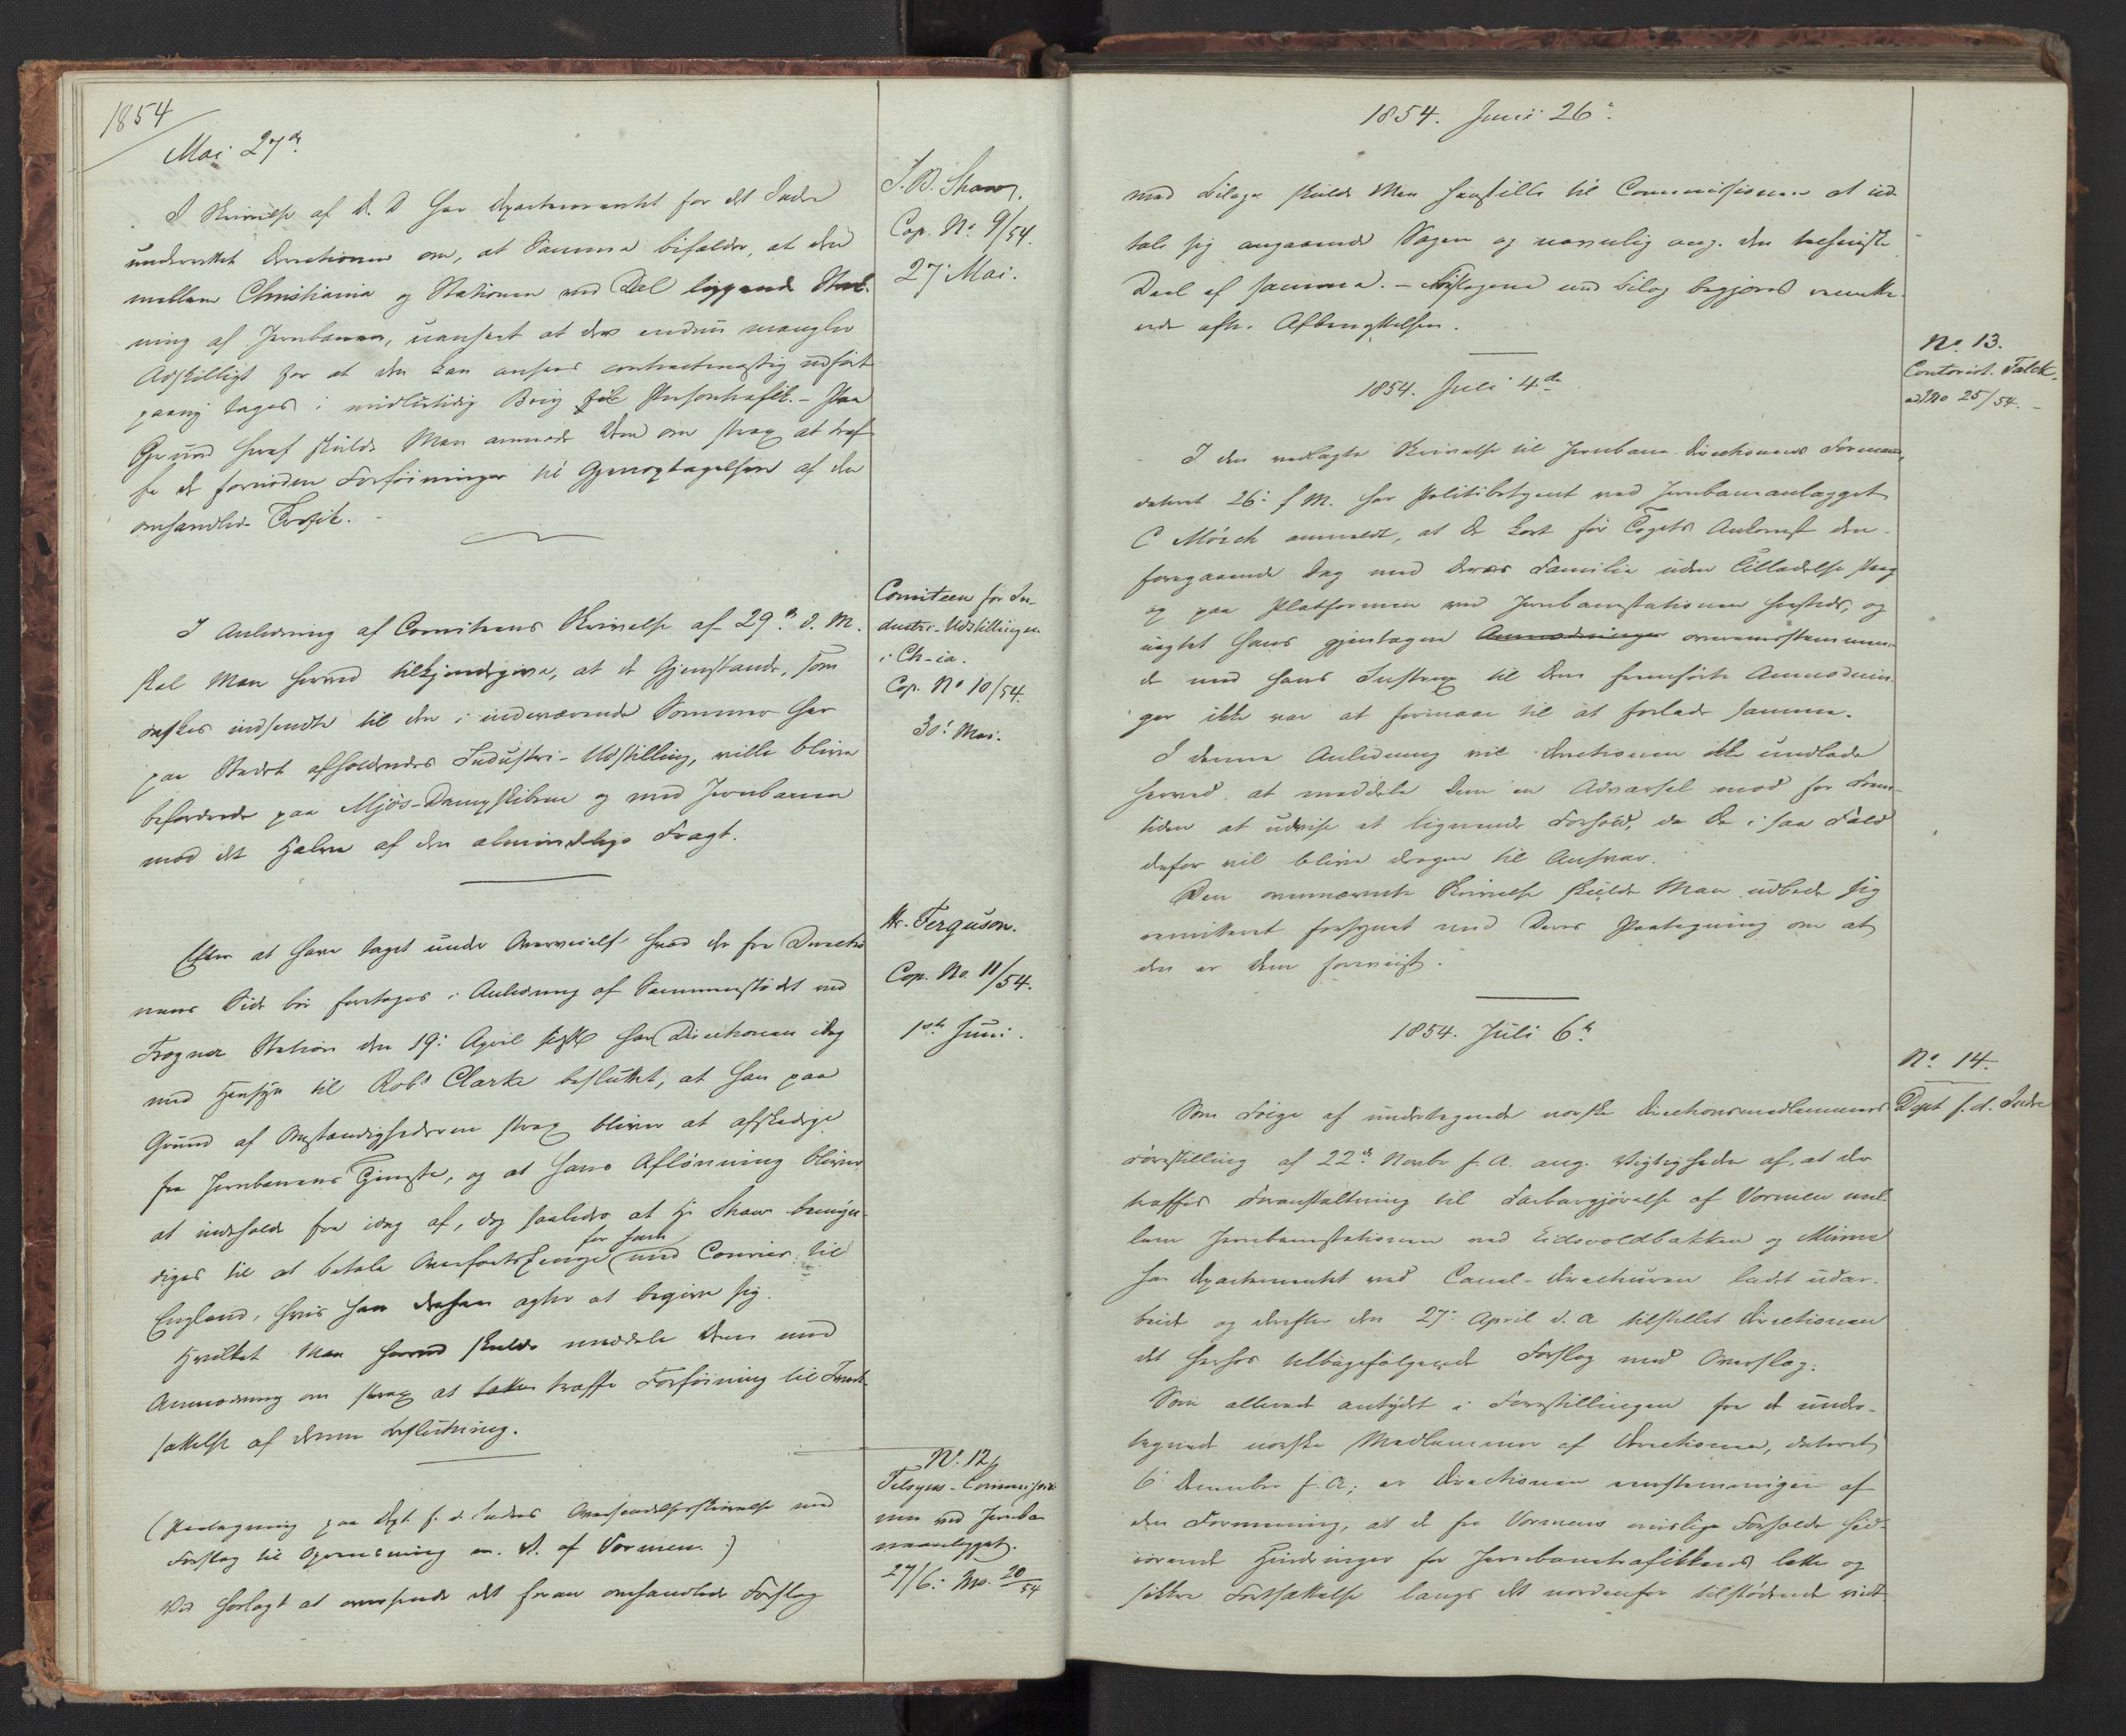 1854
Mai 27de
J. B. Shaw.
Cop. No 9/54.
27 Mai.
I Skrivelse af D. D har Departementet for det Indre
underrettet Directionen om, at Samme bifalder, at den
mellem Christiania og Stationen ved Dal liggende Stræk-
ning af Jernbanen, uanseet at der endnu mangler
Adskilligt for at den kan ansees contractmæssig udført
paany tages i midlertidig Brug for Persontrafik. – Paa
Grund heraf skulde Man anmode Dem om strax at træf-
fe de fornødne Forføininger til Gjenoptagelsen af den
omhandlede Trafik.
Comiteen for In-
dustri-Udstillingen
i Ch-ia.
Cop. No 10/54.
30: Mai.
I Anledning af Comiteens Skrivelse af 29de d. M.
skal Man herved tilkjendegive, at de Gjenstande, som
ønskes indsendte til den i indeværende Sommer her
paa Stedet afholdendes Industri-Udstilling, ville blive
befordrede paa Mjøs-Dampskibene og med Jernbanen
mod det Halve af den almindelige Fragt.
Hr. Ferguson.
Cop. No. 11/54.
1ste Juni.
Efter at have taget under Overveielse hvad der fra Directio
nens Side bør foretages i Anledning af Sammenstødet ved
Frogner Station den 19: April sidstl. har Directionen idag
med Hensyn til Robt Clarke besluttet, at han paa
Grund af Omstændighederne strax bliver at afskedige
fra Jernbanens Tjeneste, og at hans Aflønning bliver
at indeholde fra idag af, dog saaledes at Hr Shaw bemyn-
diges til at betale Overfartspenge for ham med Courier til
England, hvis han derhen agter at begive sig.
Hvilket Man herved skulde meddele Dem med
Anmodning om strax at træffe Forføining til Iværk-
sættelse af denne Beslutning.
No. 12,
Tilsyns-Commissio
nen ved Jernba
neanlægget.
27/6: No. 20/54
(Paategning paa Dept. f. d. Indres Oversendelsesskrivelse med
Forslag til Oprensning m. V. af Vormen.)
Ved herlagt at oversende det foran omhandlede Forslag
1854. Juni 26:
med Bilage skulde Man henstille til Commissionen at ud-
tale sig angaaende Sagen og navnlig ang. den techniske
Deel af samme. – Forslagene med Bilag begjæres remitte-
rede efter Afbenyttelsen.
1854. Juli 4de
No. 13.
Contorist. Falck.
ad No 25/54.
I den vedlagte Skrivelse til Jernbane Directionens Formand,
dateret 26: f. M. har Politibetjent ved Jernbaneanlægget
C Mörch anmeldt, at De kort før Togets Ankomst den
foregaaende Dag med Deres Familie uden Tilladelse steeg
op paa Platformen ved Jernbanestationen hersteds, og
uagtet hans gjentagne Anmodninger overensstemmen-
de med hans Instrux til Dem fremførte Anmodnin-
ger ikke var at formaae til at forlade samme.
I denne Anledning vil Directionen ikke undlade
herved at meddele Dem en Advarsel mod for Frem-
tiden at udvise et lignende Forhold, da De i saa Fald
derfor vil blive dragen til Ansvar.
Den ovennævnte Skrivelse skulde Man udbede sig
remitteret forsynet med Deres Paategning om at
den er Dem foreviist.
1854. Juli 6te
No. 14.
Dept f. d. Indre
Som Følge af undertegnede norske Directionsmedlemmers
Forestilling af 22de Novbr f. A. ang. Vigtigheden af, at der
træffes Foranstaltning til Farbargjørelse af Vormen mel-
lem Jernbanestationen ved Eidsvoldbakken og Minne
har Departementet ved Canal-Directeuren ladet udar-
beide og derefter den 27: April d. A. tilstillet Directionen
det herhos tilbagefølgende Forslag med Overslag.
Som allerede antydet i Forestillingen fra de under-
tegnede norske Medlemmer af Directionen, dateret
6 December f. A., er Directionen eenstemmigen af
den Formening, at de fra Vormens mislige Forholde hid-
rørende Hindringer for Jernbanetrafikkens lette og
sikkre Fortsættelse langs det nordenfor tilstødende vidt